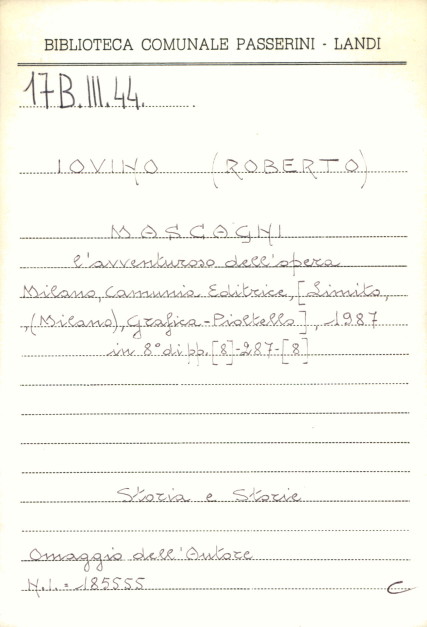 BIBLIOTECA COMUNALE PASSERINI - LANDI
17B.III.44.
IOVINO (ROBERTO)
MASCAGNI
l'avventuroso dell'opera
Milano, Camunia Editrice, [Limito,
,(Milano), Grafica-Pioltello], 1987
in 8° di pp. [8]-287-[8]
Storia e Storie
Omaggio dell'Autore
N.I. = 185555
C